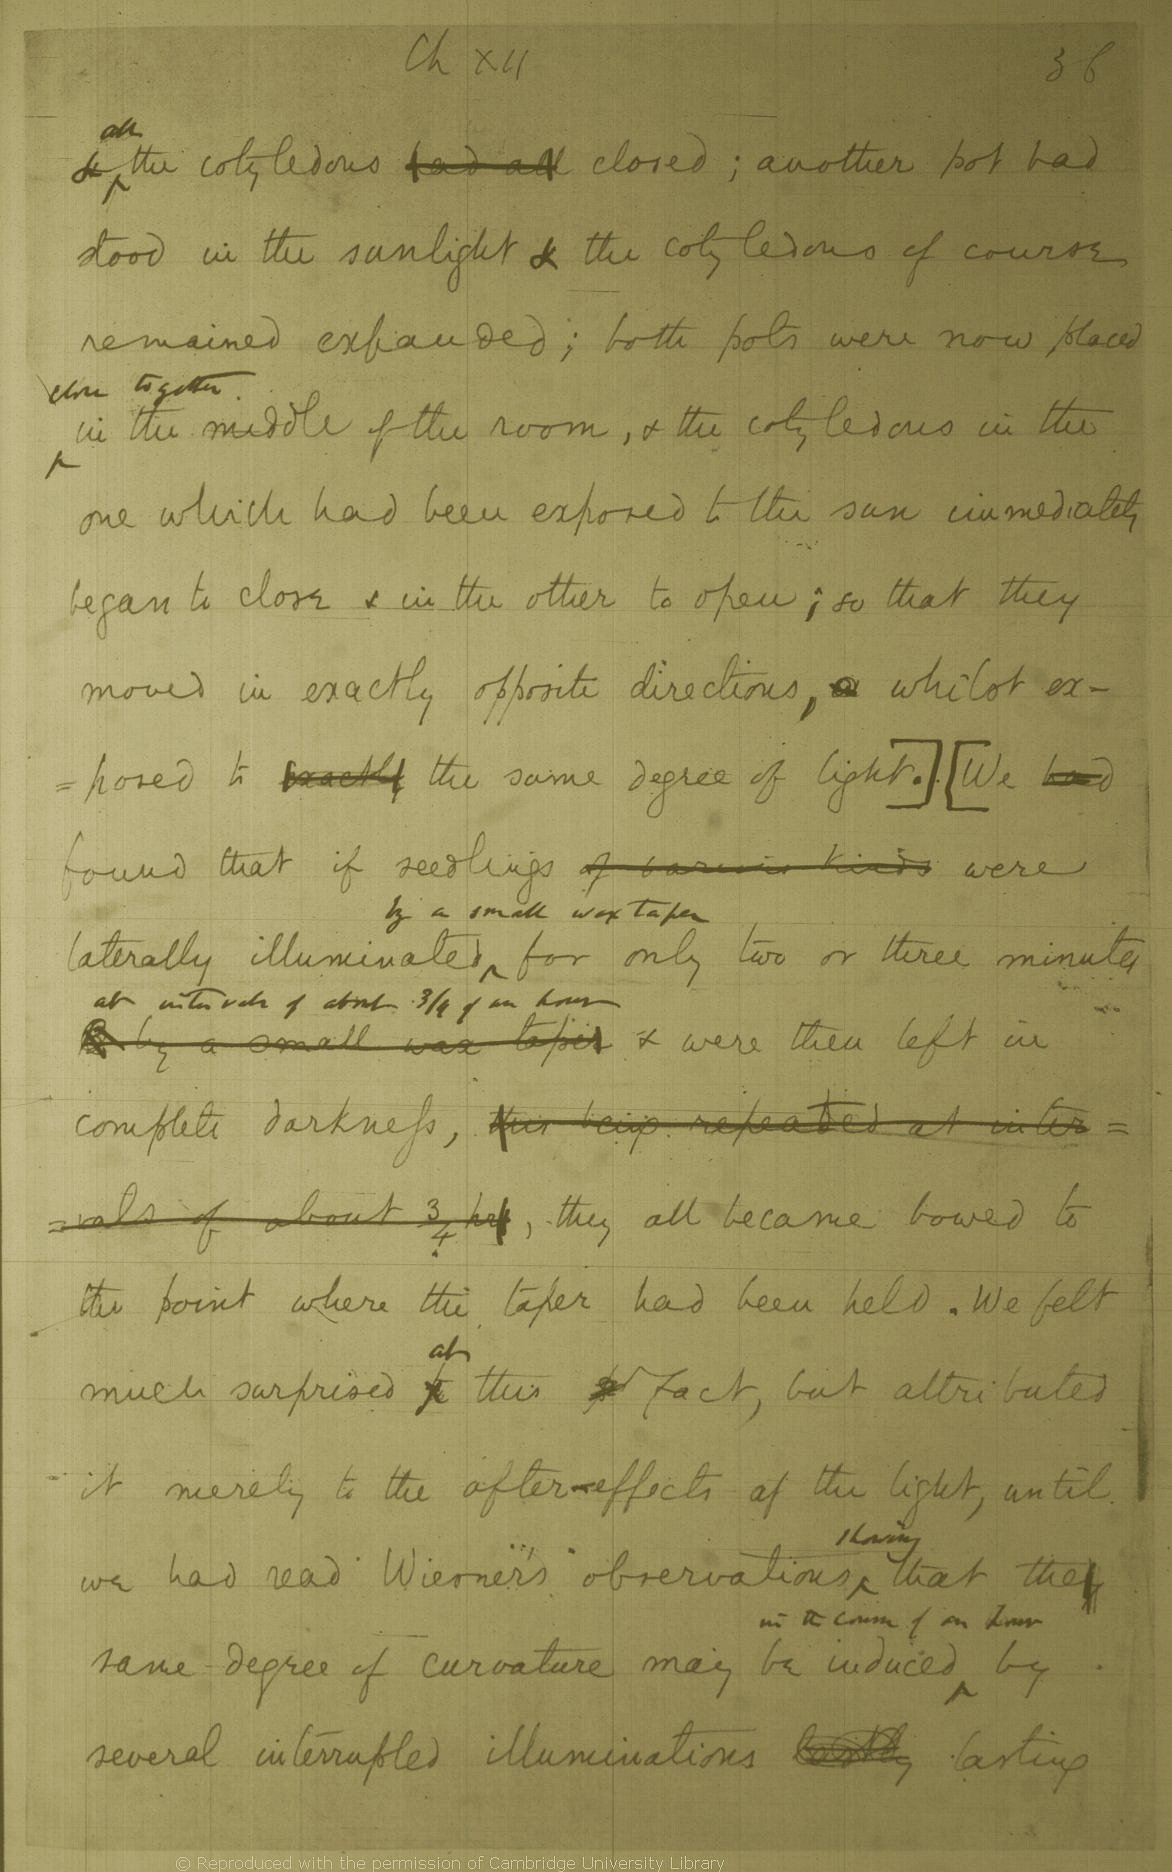 Ch XII 36
all
& the cotyledons had all closed; another pot had
stood in the sunlight & the cotyledons of course
remained expanded; both pots were now placed
close together
in the middle of the room, & the cotyledons in the
one which had been exposed to the sun immediately
began to close & in the other to open; so that they
moved in exactly opposite directions, whilst ex-
=posed to exactly the same degree of light.] [We had
found that if seedlings of various kinds were
by a small wax taper
laterally illuminated for only two or three minutes
at intervals of about 3/4 of an hour
by a small wax taper & were then left in
complete darkness, this being repeated at inter=
=vals of about 3/4 hrs, they all became bowed to
the point where the taper had been held. We felt
at
much surprised to this fact, but attributed
it merely to the after-effects of the light, until
showing
we had read Wiesner's observations, that the
in the course of an hour
same degree of curvature may be induced by
several interrupted illuminations lasting
© Reproduced with the permission of Cambridge University Library